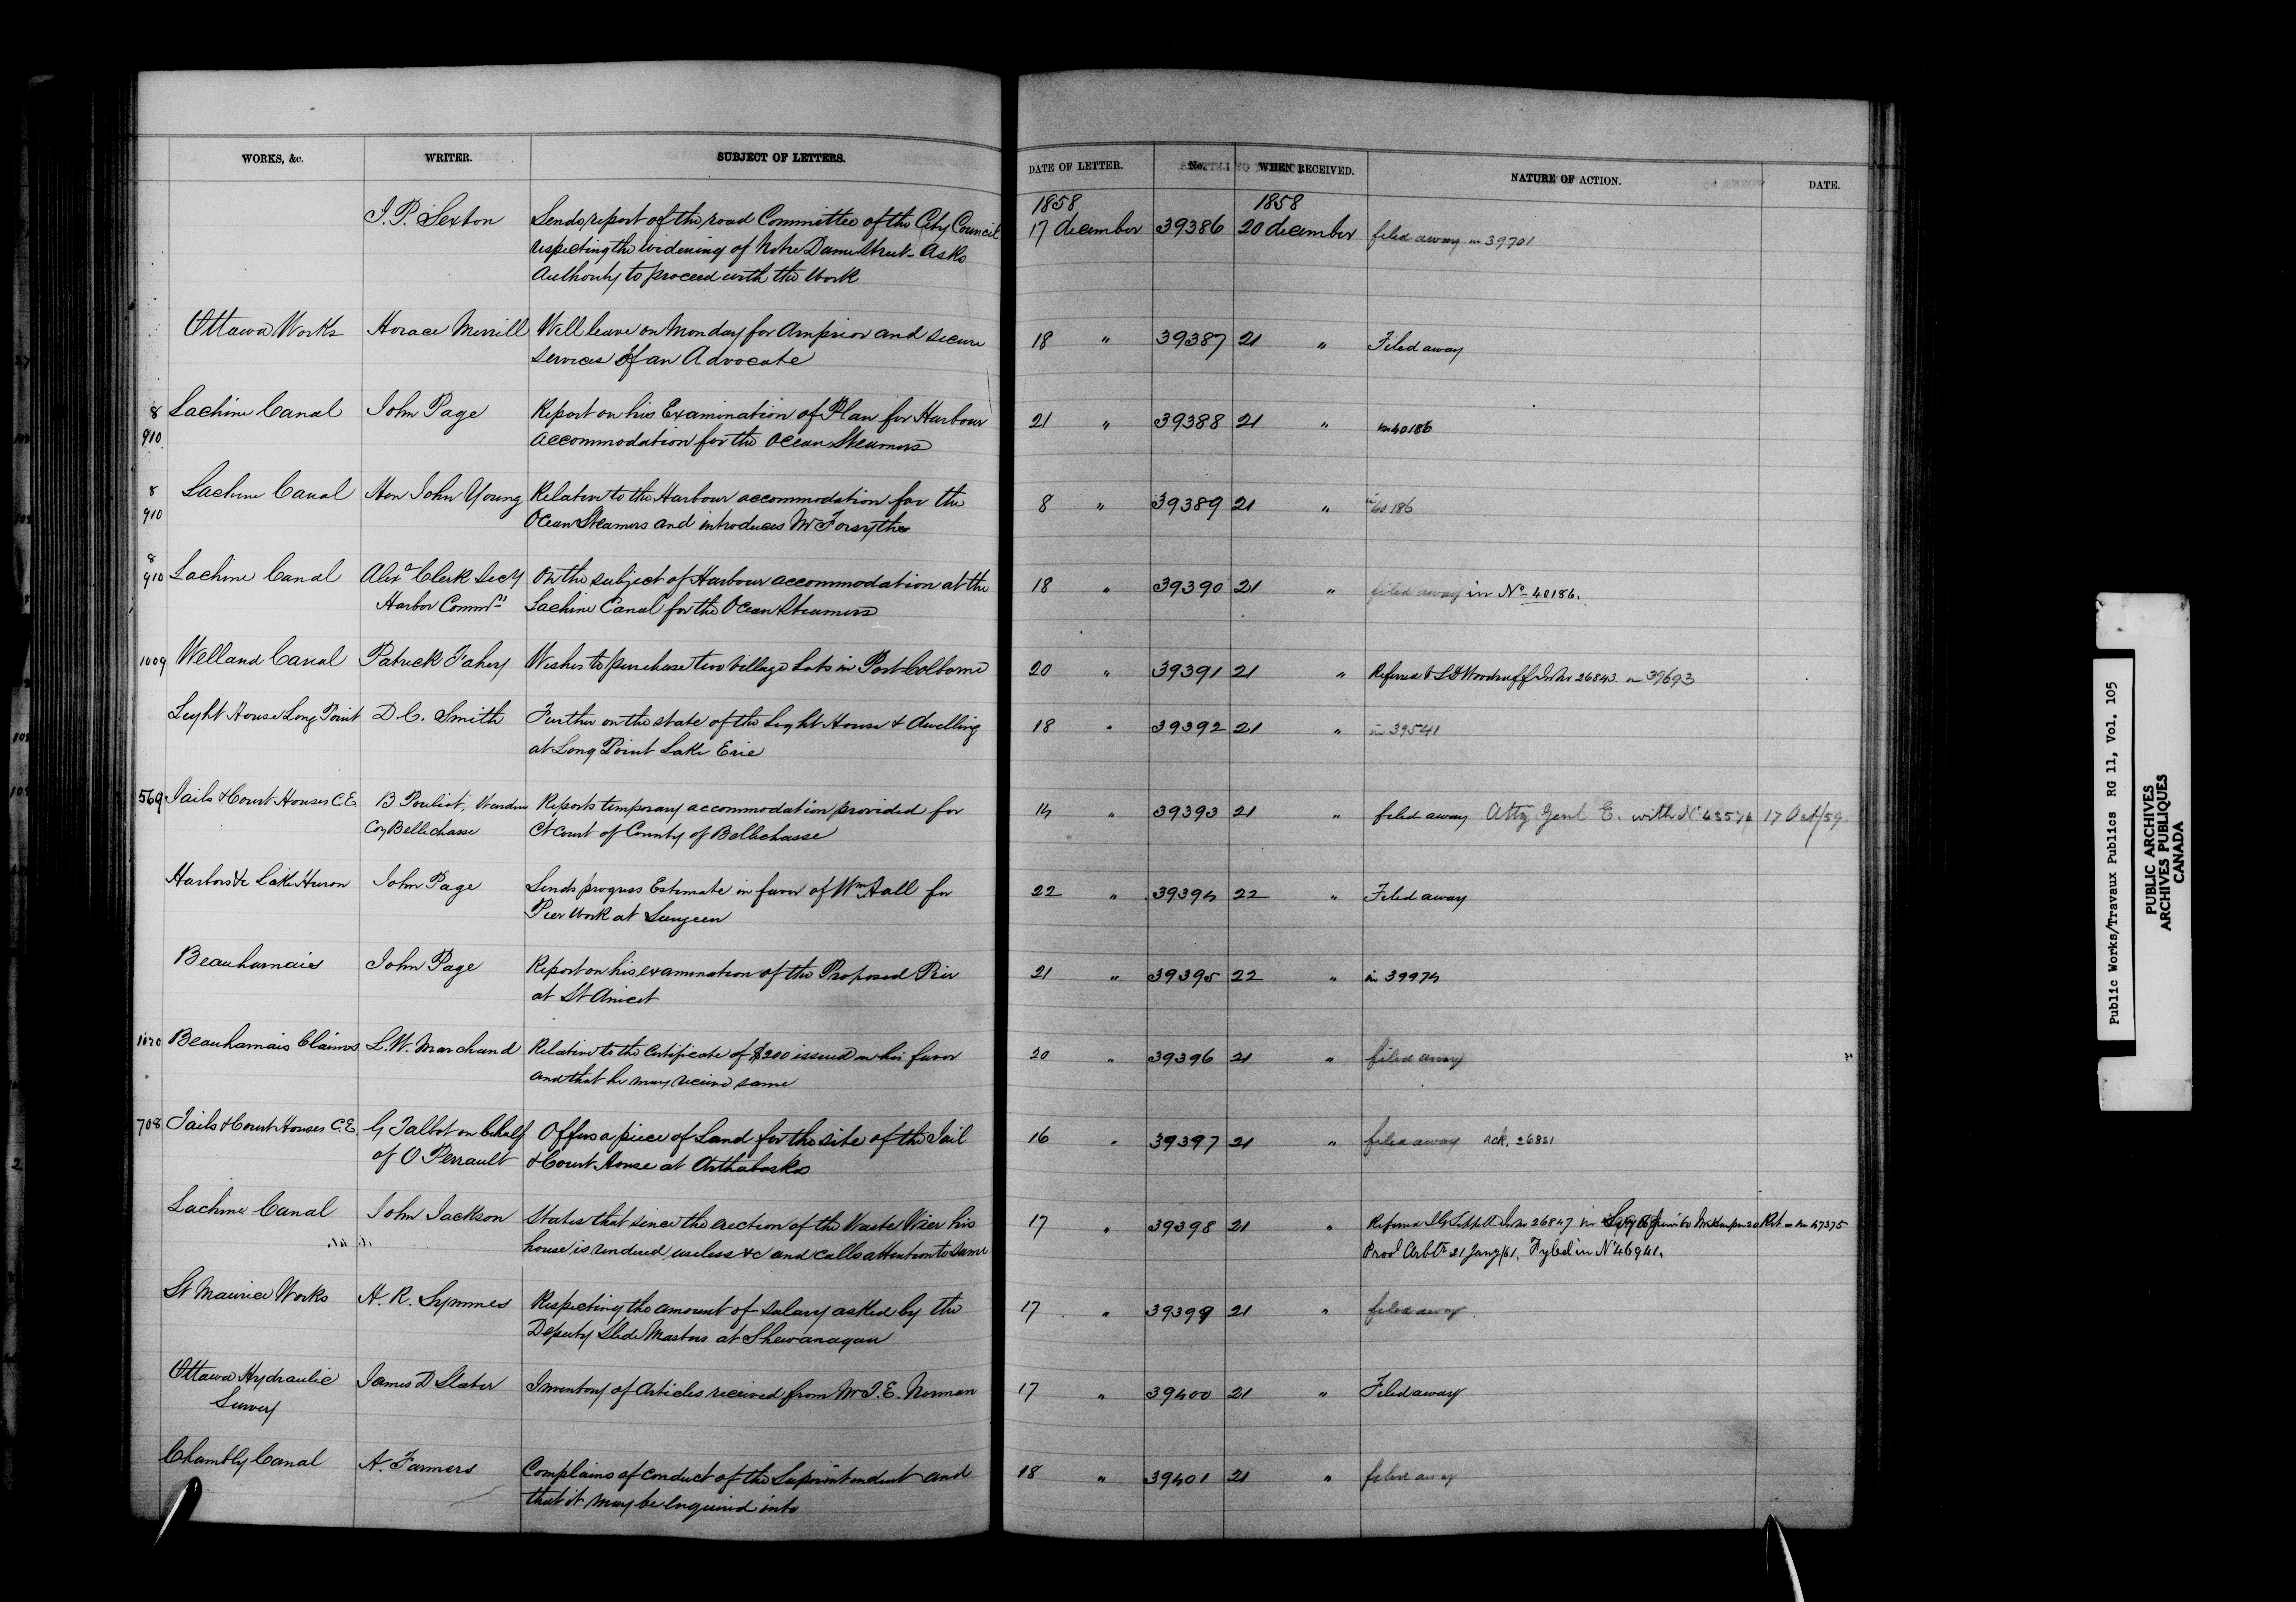 WORKS, &c. WRITER. SUBJECT OF LETTERS. DATE OF LETTER. No. WHEN RECEIVED. NATURE OF ACTION. DATE.
1858 1858
J. P. Sexton Sends report of the road Committee of the City Council 17 december 39386 20 december filed away in 39701
respecting the widening of Notre Dame Street - Asks
Authority to proceed with the Work
Ottawa Works Horace Merrill Will leave on Monday for Arnprior and secure 18 " 39387 21 " Filed away
services of an Advocate
8 Lachine Canal John Page Report on his Examination of Plan for Harbour 21 " 39388 21 " in 40186
910 accommodation for the Ocean Steamers
8 Lachine Canal Hon John Young Relative to the Harbour accommodation for the 8 " 39389 21 " in 40186
910 Ocean Steamers and introduces Mr Forsythe
8
910 Lachine Canal Alexr Clerk Secy On the subject of Harbour accommodation at the 18 " 39390 21 " filed away in No 40186.
Harbor Commrs Lachine Canal for the Ocean Steamers
1009 Welland Canal Patrick Fahey Wishes to purchase two Village Lots in Port Colborne 20 " 39391 21 " Referred to S D Woodruff In No 26843 in 39693
Light House Long Point D. C. Smith Further on the state of the Light House & dwelling 18 " 39392 21 " in 39541
at Long Point Lake Erie
569 Jails & Court Houses C.E. B Pouliot, Warden Reports temporary accommodation provided for 14 " 39393 21 " filed away Atty Genl E. with No 43574 17 Oct/59
Coy Bellechasse Ct Court of County of Bellechasse
Harbors &c Lake Huron John Page Sends progress Estimate in favor of Wm Hall for 22 " 39394 22 " Filed away
Pier Work at Saugeen
Beauharnais John Page Report on his examination of the Proposed Pier 21 " 39395 22 " in 39974
at St Anicet
1020 Beauharnais Claims L. W. Marchand Relative to the Certificate of $200 issued in his favor 20 " 39396 21 " filed away
and that he may receive same
708 Jails & Court Houses C.E. G Talbot on behalf Offers a piece of Land for the site of the Jail 16 " 39397 21 " filed away Ack. 26821
of O Perrault & Court House at Arthabaska
Lachine Canal John Jackson States that since the erection of the Waste Weir his 17 " 39398 21 " Referred J G Sippell In No 26847 in Ret in No 47375
house is rendered useless &c and calls attention to same Provl Arbtrs 21 Jany/61. Fyled in No 46941.
St Maurice Works H. R. Symmes Respecting the amount of salary asked by the 17 " 39399 21 " filed away
Deputy Slide Masters at Shewanagan
Ottawa Hydraulic James D Slater Inventory of Articles received from Mr J. E. Norman 17 " 39400 21 " Filed away
Survey
Chambly Canal A. Farmers Complains of conduct of the Superintendent and 18 " 39401 21 " filed away
that it may be enquired into
Public Works/Travaux Publics RG 11, Vol. 105
PUBLIC ARCHIVES
ARCHIVES PUBLIQUES
CANADA